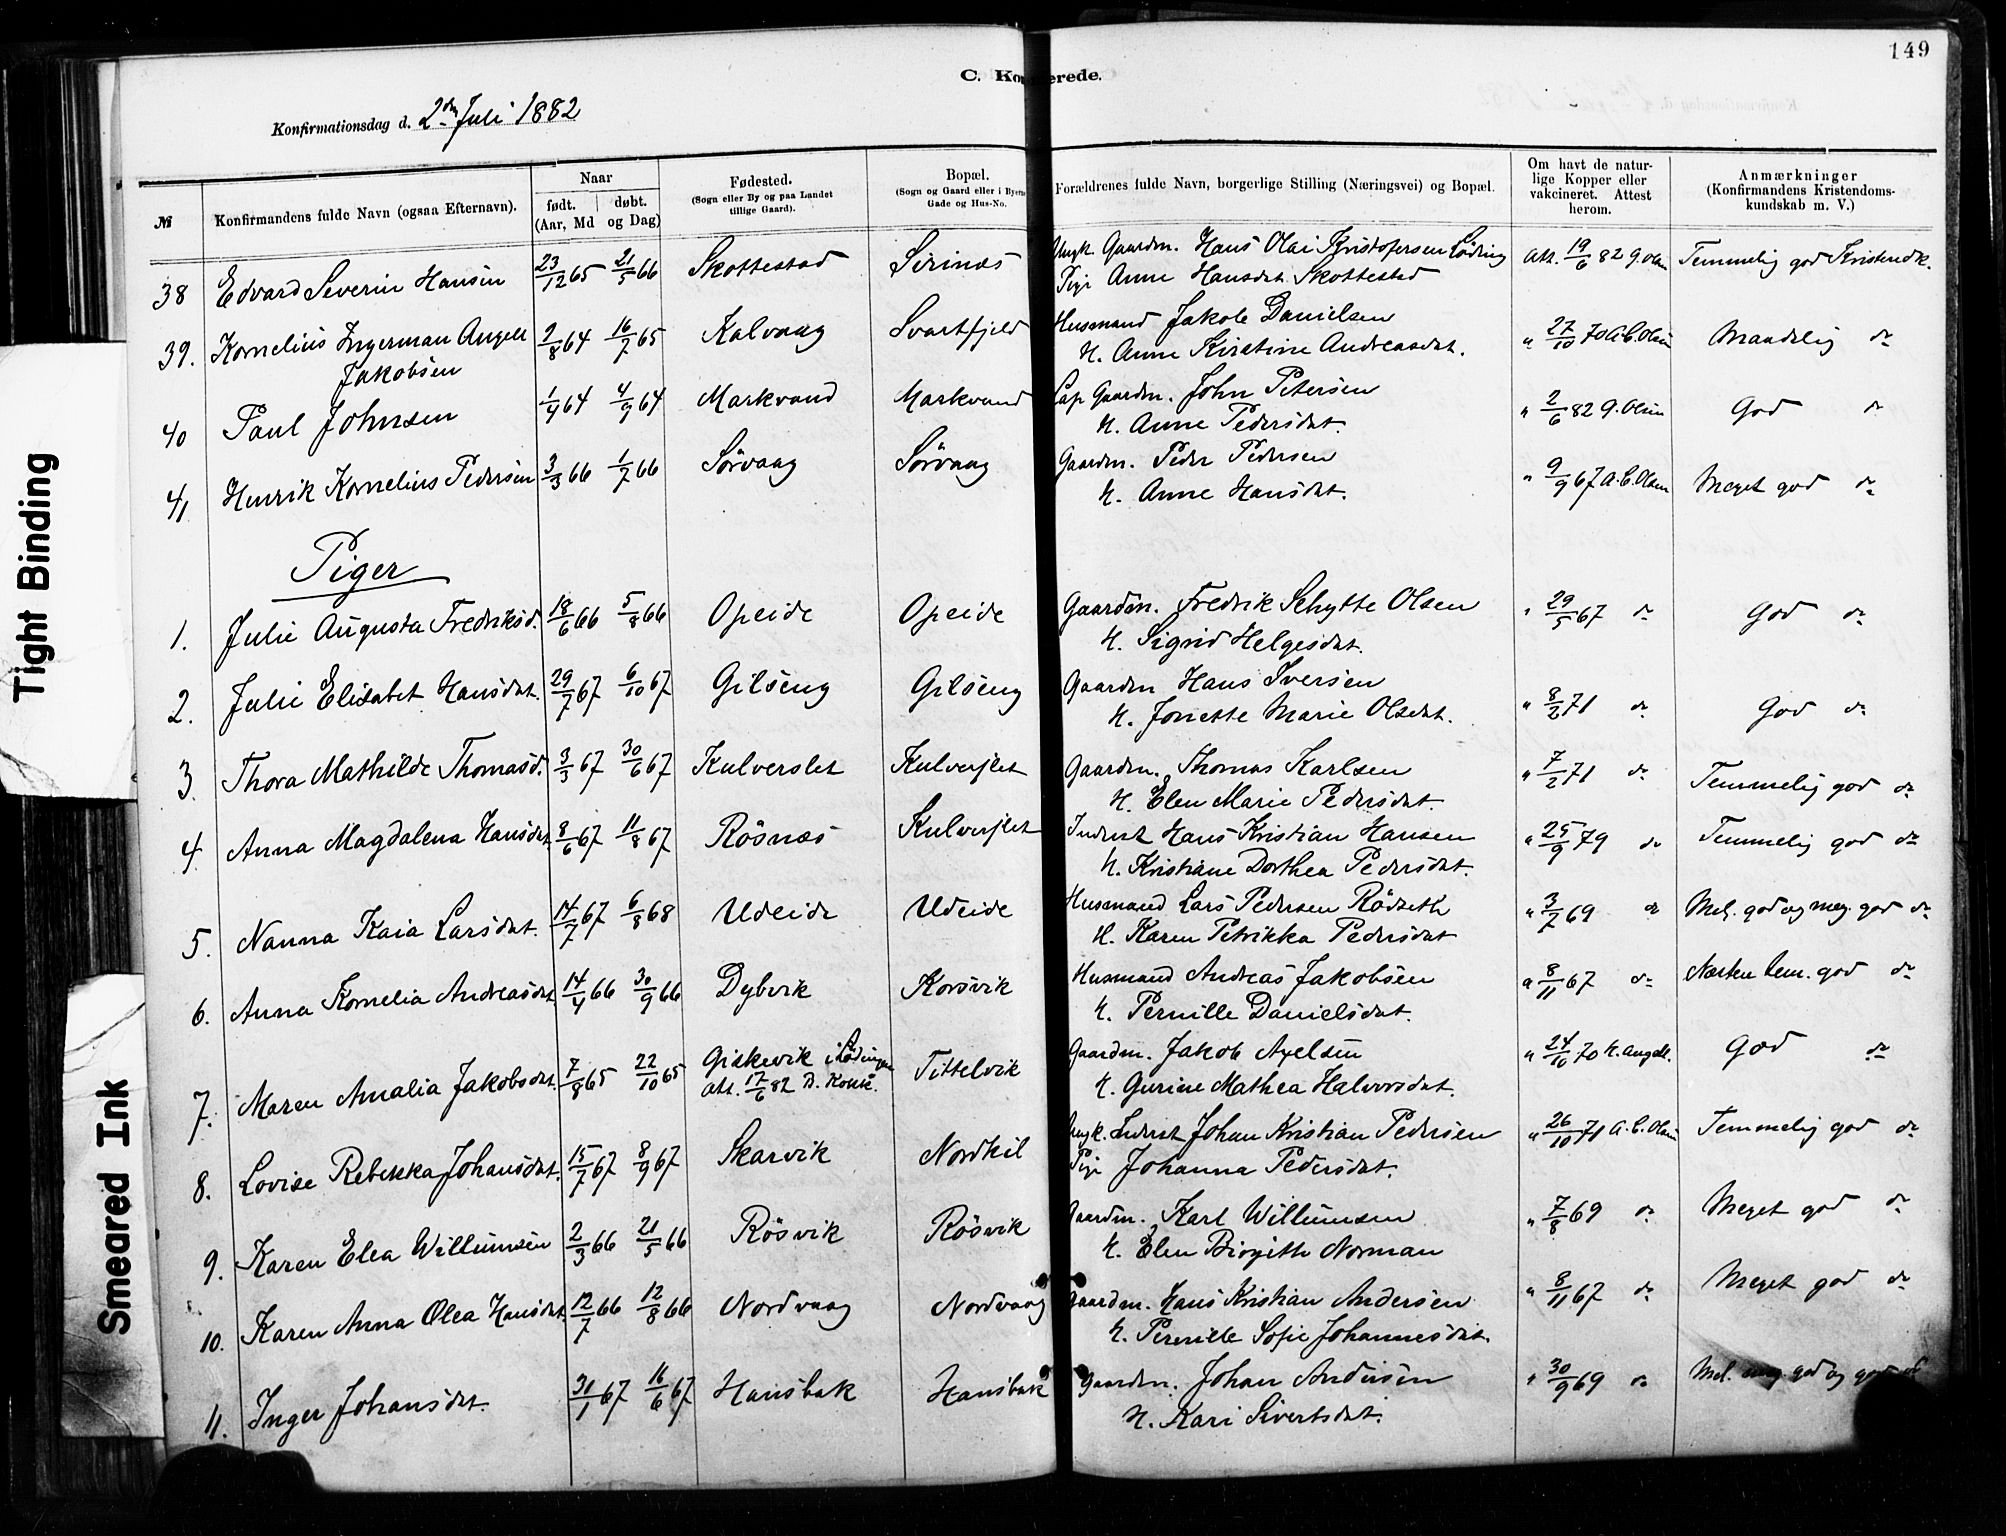 149
C. Ko erede.
Konfirmationsdag d. 2den Juli 1882
№
Konfirmandens fulde Navn (ogsaa Efternavn).
Naar
født. døbt.
(Aar, Md og Dag)
Fødested.
(Sogn eller By og paa Landet
tillige Gaard).
Bopæl.
(Sogn og Gaard eller i Byerne
Gade og Hus-No.
Forældrenes fulde Navn, borgerlige Stilling (Næringsvei) og Bopæl.
Om havt de natur-
lige Kopper eller
vakcineret. Attest
herom.
Anmærkninger
(Konfirmandens Kristendoms-
kundskab m. V.)
38 Edvard Severin Hansen 23/12 65 21/5 66 Skottestad Sirinæs Ungk. Gaardm. Hans Olai Kristofersen Löding Att. 19/6 82 G. Olsen Temmelig god Kristendk.
Pige Anne Hansdat. Skottestad
39. Kornelius Ingerman Angell 2/8 64 16/7 65 Kalvaag Svartfjeld Husmand Jakob Danielsen " 27/10 70 A. C. Olsen Maadelig do
Jakobsen H. Anne Kirstine Andreasdat.
40 Paul Johnsen 1/4 64 4/9 64 Markvand Markvand Lap Gaardm. John Petersen " 2/6 82 G. Olsen God do
H. Anne Pedersdat.
41 Henrik Kornelius Pedersen 3/3 66 1/7 66 Sörvaag Sörvaag Gaardm. Peder Pedersen " 9/9 67 A. C. Olsen Meget god do
H. Anne Hansdat.
Piger
1. Julie Augusta Fredriksd. 18/6 66 5/8 66 Opeide Opeide Gaardm. Fredrik Schytte Olsen " 29/5 67 do God do
H. Sigrid Helgesdat.
2. Julie Elisabet Hansdat. 29/7 67 6/10 67 Gilseng Gilseng Gaardm Hans Iversen " 8/2 71 do God do
H. Jonette Marie Olsdat.
3. Thora Mathilde Thomasd. 3/3 67 30/6 67 Kulverslet Kulverslet Gaardm. Thomas Karlsen " 7/2 71 do Temmelig god do
H. Elen Marie Pedersdat.
4. Anna Magdalena Hansdat 8/6 67 11/8 67 Rösnæs Kulverslet Inderst Hans Kristian Hansen " 25/9 79 do Temmelig god do
H. Kristiane Dorthea Pedersdat.
5. Nanna Kaia Larsdat. 14/7 67 6/8 68 Udeide Udeide Husmand Lars Pedersen Rödseth " 3/7 69 do Mel. god og meg. god do
H. Karen Petrikka Pedersdat
6. Anna Kornelia Andreasdat 14/4 66 30/9 66 Dybvik Korsvik Husmand Andreas Jakobsen " 8/11 67 do Næsten tem. god do
H. Pernille Danielsdat.
7. Maren Amalia Jakobsdat. 7/8 65 22/10 65 Giskevik i Lödingen Tittelvik Gaardm. Jakob Axelsen " 24/10 70 K. Angell. God do
att. 17/6 82 H. Gurine Mathea Halvorsdat.
8. Lovise Rebekka Johansdat. 15/7 67 8/9 67 Skarvik Nordkil Ungk. Inderst Johan Kristian Pedersen " 26/10 71 A. C. Olsen Temmelig god do
Pige Johanna Pedersdat.
9. Karen Elea Willumsen 2/3 66 21/5 66 Rösvik Rösvik Gaardm. Karl Willumsen " 7/8 69 do Meget god do
H. Elen Birgitte Norman
10. Karen Anna Olea Hansdat. 12/7 66 12/8 66 Nordvaag Nordvaag Gaardm. Hans Kristian Andersen " 8/11 67 do Meget god do
H. Pernille Sofie Johannesdat.
11. Inger Johansdat. 31/1 67 16/6 67 Hansbak Hansbak Gaardm. Johan Andersen " 30/9 69 do Mel. meg. god og god do
H. Kari Sivertsdat.
Tight Binding
Smeared Ink